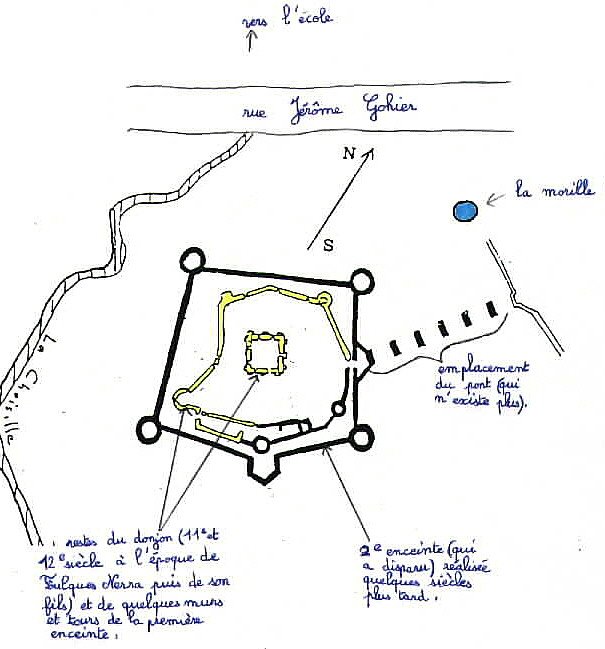 vers l'école
rue Jérôme Gohier
N
S
la morille
La Choisille
emplacement
du pont (qui
n'existe plus).
restes du donjon (11e et
12e siècle à l'époque de
Fulques Nerra puis de son
fils) et de quelques murs
et tours de la première
enceinte.
2e enceinte (qui
a disparu) réalisée
quelques siècles
plus tard.